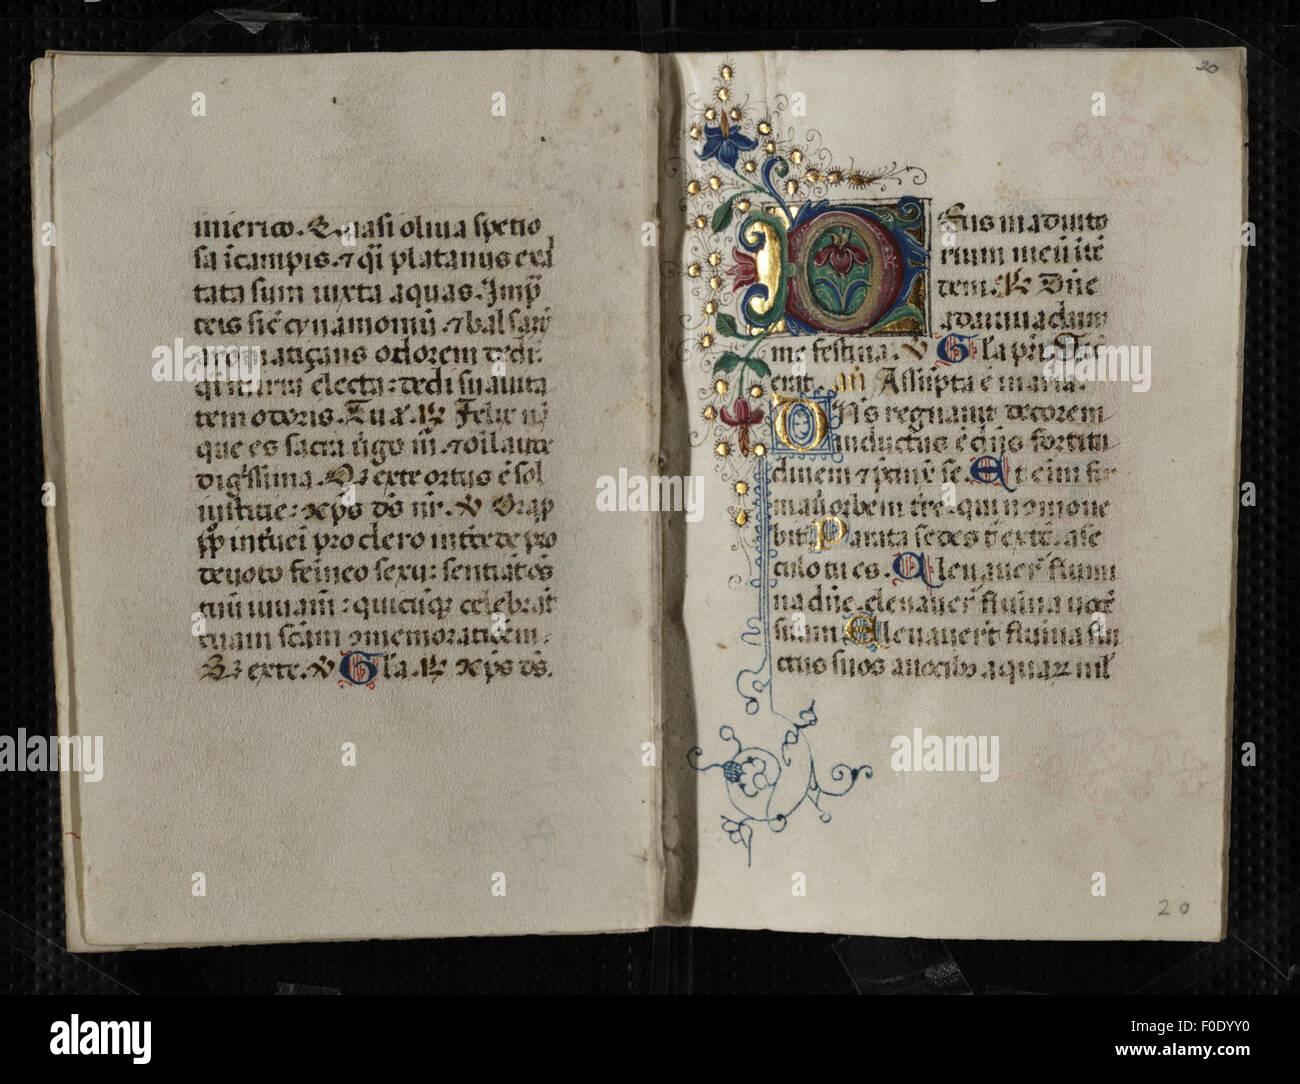 20
mierico. Quasi oliva spetio
sa ī campis. ⁊ q̄i platanus exal
tata sum iuxta aquas. In p̄
teis sīc cynamomū. ⁊ balsam̄
aromatiçans odorem dedi:
q̄i mirra electa: dedi suavita
tem odoris. Tu a. ℟ Felix nā
que es sacra v̄go m̄. ⁊ oī laude
digissima. Qꝫ ex te ortus ē sol
iusticie: xp̄s ds̄ nr̄. ℣ Ora p̄
pp̄ intv̄ei pro clero int̄cede pro
devoto femineo sexu: sentiāt oēs
tuū iuuam̄: quicūq̄ celebrāt
tuam scām 9memoratiōem.
Qꝫ ex te. ℣ Gl̄a. ℟ xp̄s ds̄.
Deus in adiuto
rium meū ītē
dem. ℟ Dn̄e
ad aiuuadum
me festina. ℣ Gl̄a pr̄i. Sic̄
erit. añ Assūpta ē maria.
Dn̄s regnavit decorem
inductus ē: ī̄dus fortitu
dinem ⁊ p̄anx̄ se. Et eim fir
mav̄ orbem tr̄e. qui non mone
bit̄. Parata sedes t̄ ex tē. a se
culo tu es. Elevaver̄ flumi
na dn̄e. elevaver̄ flumina vocē
suam. Elevaver̄t flumina flu
ctus suos a vocibꝫ aquaꝝ ml̄
20
alamy
Image ID: F0DYY0
www.alamy.com